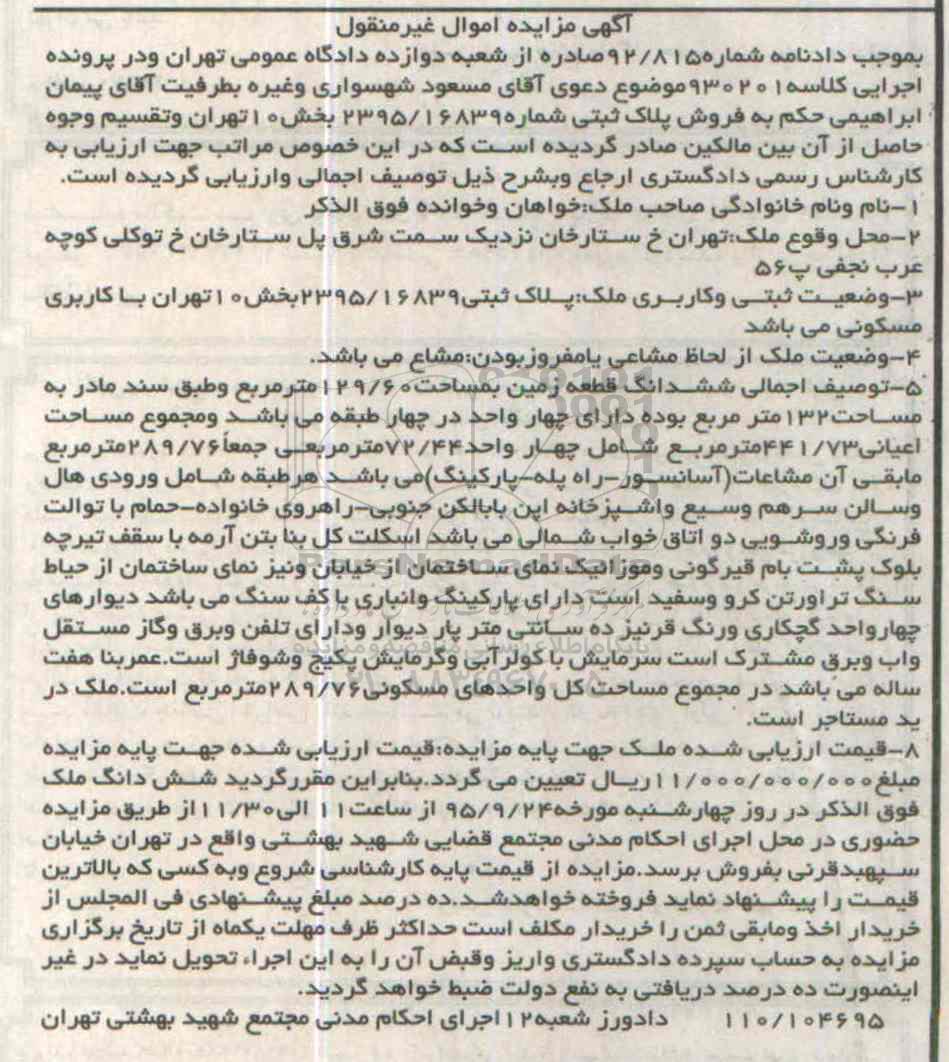 آگهی مزایده اموال غیرمنقول
بموجب دادنامه شماره۹۲/۸۱۵صادره از شعبه دوازده دادگاه عمومی تهران ودر پرونده
اجرایی کلاسه۹۳۰۲۰۱موضوع دعوی آقای مسعود شهسواری وغیره بطرفیت آقای پیمان
ابراهیمی حکم به فروش پلاک ثبتی شماره۲۳۹۵/۱۶۸۳۹ بخش۱۰تهران وتقسیم وجوه
حاصل از آن بین مالکین صادر گردیده است که در این خصوص مراتب جهت ارزیابی به
کارشناس رسمی دادگستری ارجاع وبشرح ذیل توصیف اجمالی وارزیابی گردیده است.
۱-نام ونام خانوادگی صاحب ملک:خواهان وخوانده فوق الذکر
۲-محل وقوع ملک:تهران خ ستارخان نزدیک سمت شرق پل ستارخان خ توکلی کوچه
عرب نجفی پ۵۶
۳-وضعیت ثبتی وکاربری ملک:پلاک ثبتی۲۳۹۵/۱۶۸۳۹بخش۱۰تهران با کاربری
مسکونی می باشد
۴-وضعیت ملک از لحاظ مشاعی یامفروزبودن:مشاع می باشد.
۵-توصیف اجمالی ششدانگ قطعه زمین بمساحت۱۲۹/۶۰مترمربع وطبق سند مادر به
مساحت۱۳۲متر مربع بوده دارای چهار واحد در چهار طبقه می باشد ومجموع مساحت
اعیانی۴۴۱/۷۳مترمربع شامل چهار واحد۷۲/۴۴مترمربعی جمعا۲۸۹/۷۶مترمربع
مابقی آن مشاعات(آسانسور-راه پله-پارکینگ)می باشد هرطبقه شامل ورودی هال
وسالن سرهم وسیع واشپزخانه اپن بابالکن جنوبی-راهروی خانواده-حمام با توالت
فرنگی وروشویی دو اتاق خواب شمالی می باشد اسکلت کل بنا بتن آرمه با سقف تیرچه
بلوک پشت بام قیرگونی وموزائیک نمای ساختمان از خیابان ونیز نمای ساختمان از حیاط
سنگ تراورتن کرو وسفید است دارای پارکینگ وانباری با کف سنگ می باشد دیوارهای
چهارواحد گچکاری ورنگ قرنیز ده سانتی متر پار دیوار ودارای تلفن وبرق وگاز مستقل
واب وبرق مشترک است سرمایش با کولرآبی وگرمایش پکیج وشوفاژ است.عمربنا هفت
ساله می باشد در مجموع مساحت کل واحدهای مسکونی۲۸۹/۷۶مترمربع است.ملک در
ید مستاجر است.
۸-قیمت ارزیابی شده ملک جهت پایه مزایده:قیمت ارزیابی شده جهت پایه مزایده
مبلغ۱۱/۰۰۰/۰۰۰/۰۰۰ریال تعیین می گردد.بنابراین مقررگردید شش دانگ ملک
فوق الذکر در روز چهارشنبه مورخه۹۵/۹/۲۴ از ساعت۱۱ الی۱۱/۳۰از طریق مزایده
حضوری در محل اجرای احکام مدنی مجتمع قضایی شهید بهشتی واقع در تهران خیابان
سپهبدقرنی بفروش برسد.مزایده از قیمت پایه کارشناسی شروع وبه کسی که بالاترین
قیمت را پیشنهاد نماید فروخته خواهدشد.ده درصد مبلغ پیشنهادی فی المجلس از
خریدار اخذ ومابقی ثمن را خریدار مکلف است حداکثر ظرف مهلت یکماه از تاریخ برگزاری
مزایده به حساب سپرده دادگستری واریز وقبض آن را به این اجراء تحویل نماید در غیر
اینصورت ده درصد دریافتی به نفع دولت ضبط خواهد گردید.
۱۱۰/۱۰۴۶۹۵ دادورز شعبه۱۲اجرای احکام مدنی مجتمع شهید بهشتی تهران